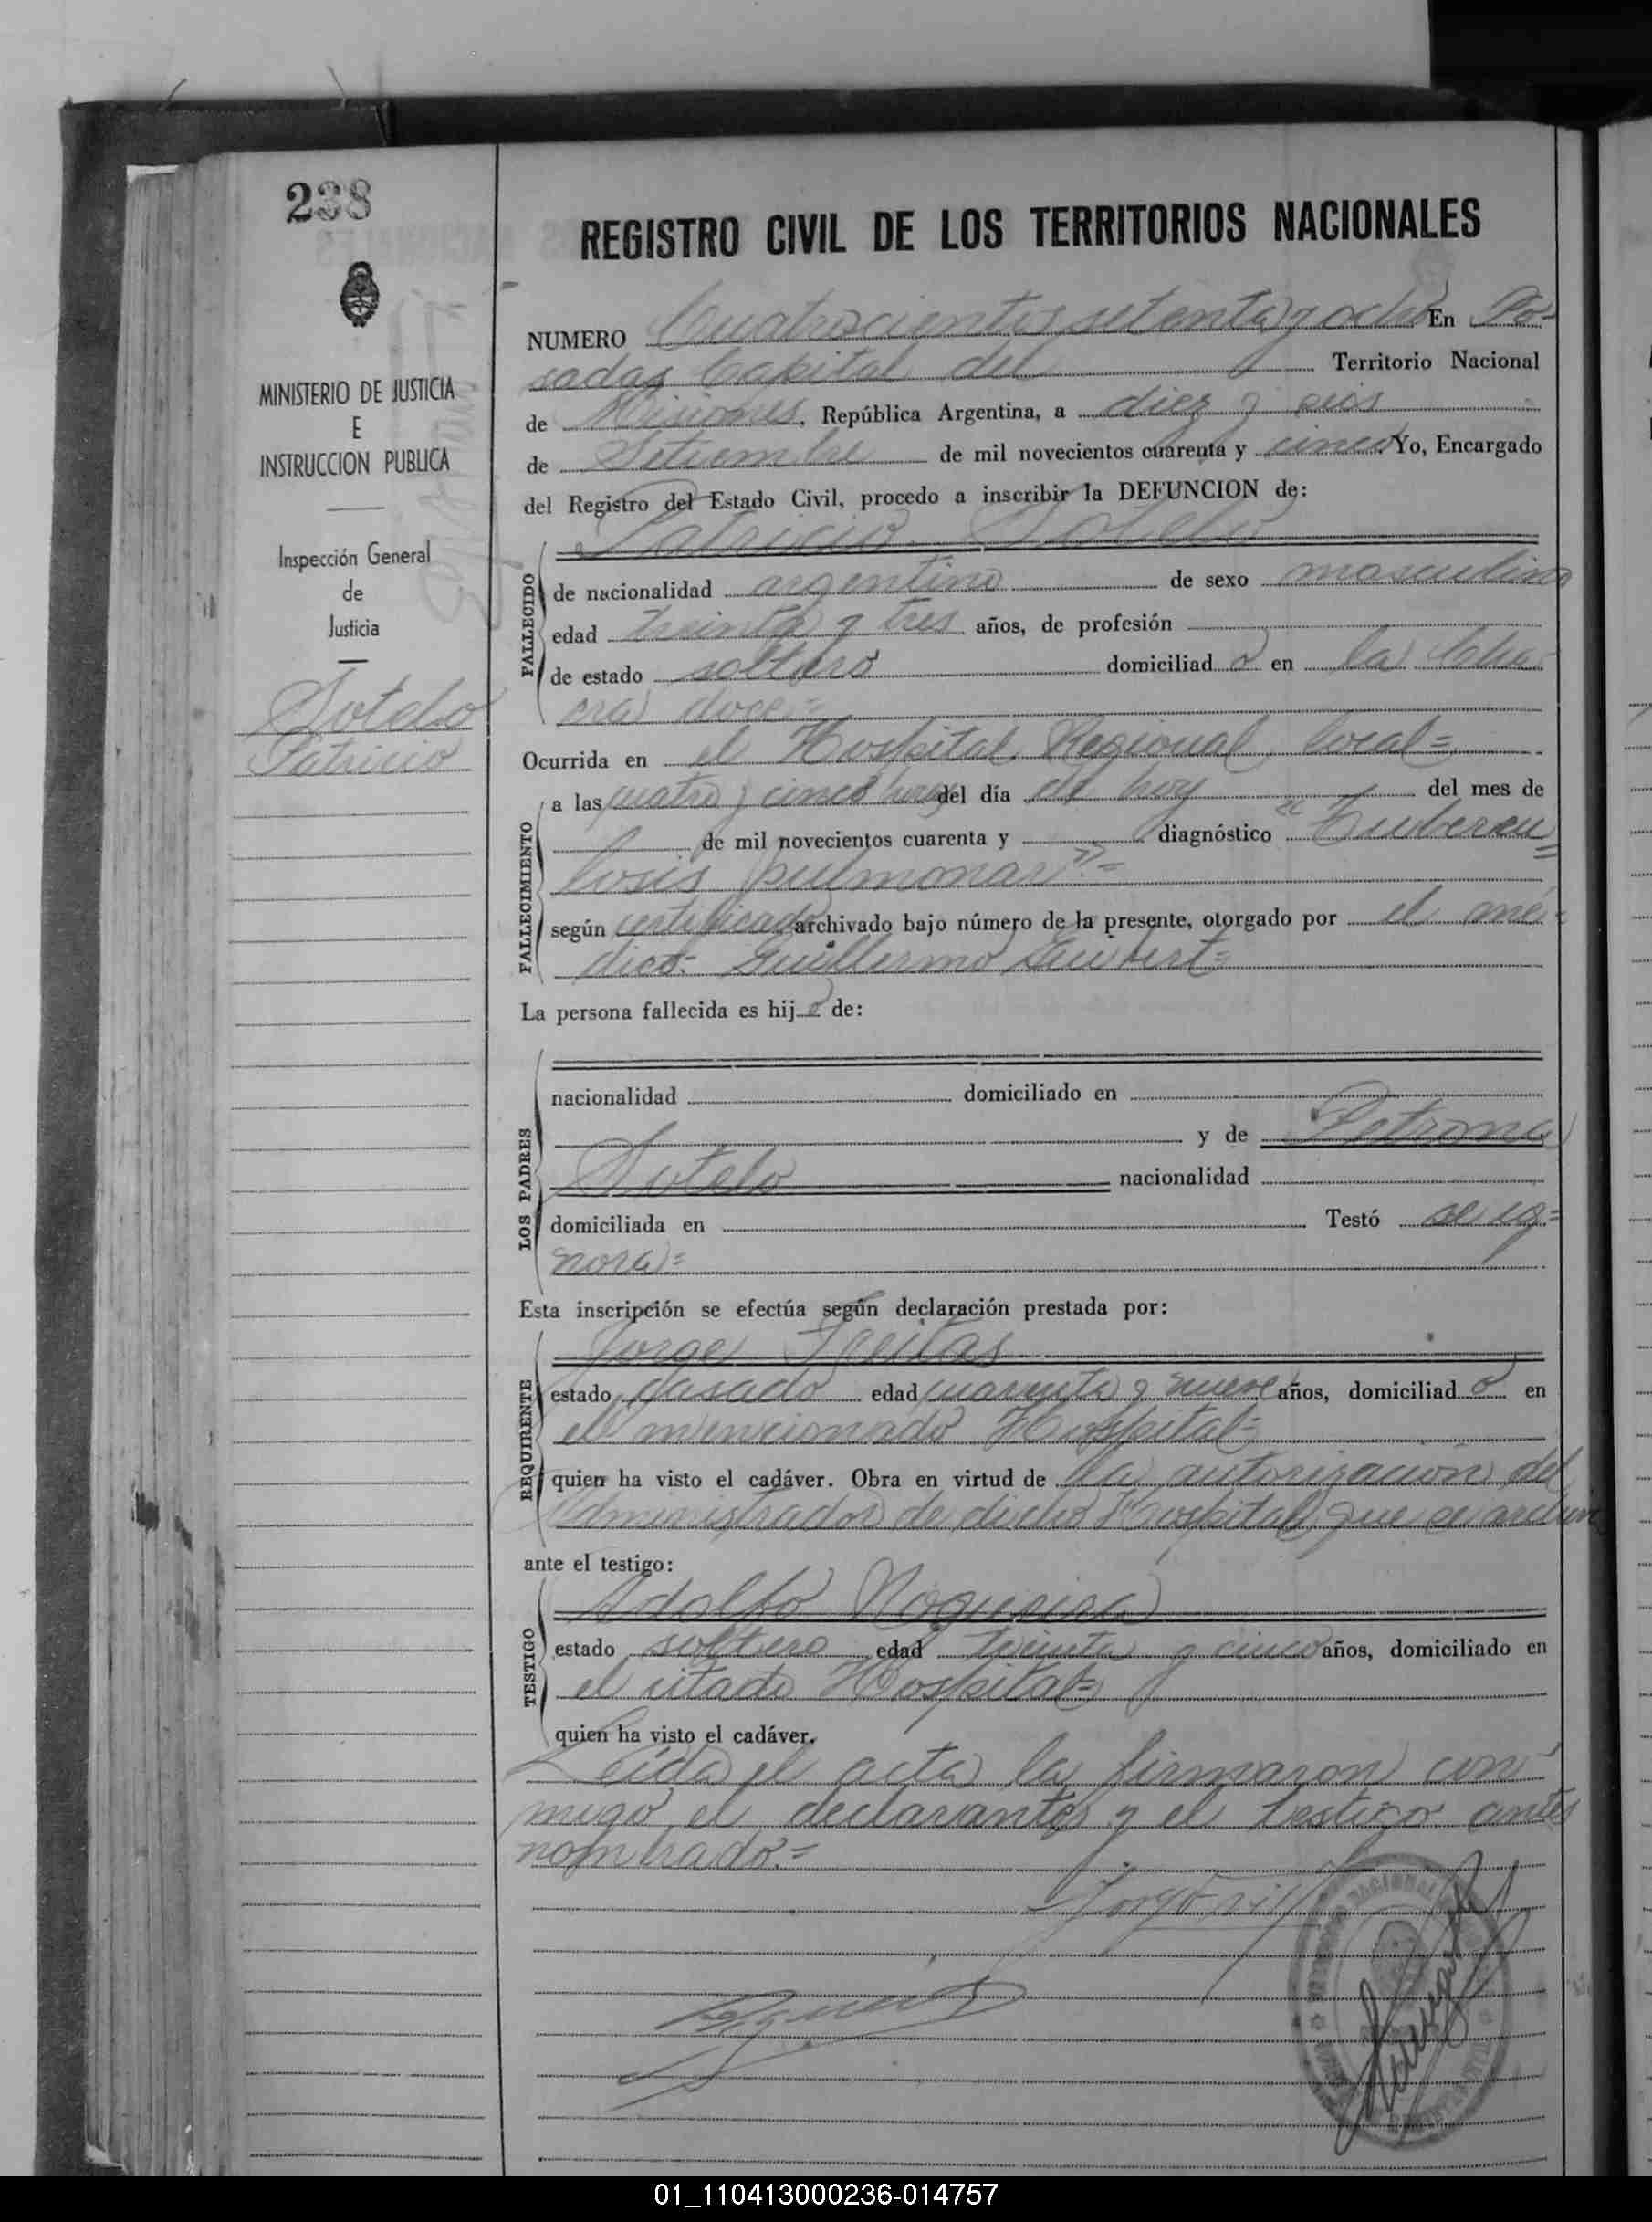 238
REGISTRO CIVIL DE LOS TERRITORIOS NACIONALES
MINISTERIO DE JUSTICIA
E
INSTRUCCION PUBLICA
Inspección General
de
Justicia
Sotelo
Patricio
NUMERO Cuatrocientos setenta y ocho En Po-
sadas Capital del Territorio Nacional
de Misiones, República Argentina, a diez y seis
de Setiembre de mil novecientos cuarenta y cinco Yo, Encargado
del Registro del Estado Civil, procedo a inscribir la DEFUNCION de:
Patricio Sotelo
FALLECIDO
de nacionalidad argentino de sexo masculino
edad treinta y tres años, de profesión
de estado soltero domiciliado en la Cha
cra doce=
Ocurrida en el Hospital Regional local=
FALLECIMIENTO
a las cuatro y cinco horas del día de hoy del mes de
de mil novecientos cuarenta y diagnóstico "Tubercu=
losis pulmonar"=
según certificado archivado bajo número de la presente, otorgado por el mé=
dico= Guillermo
La persona fallecida es hijo de:
LOS PADRES
nacionalidad domiciliado en
y de Petrona
Sotelo nacionalidad
domiciliada en Testó se ig=
nora=
Esta inscripción se efectúa según declaración prestada por:
Jorge Freitas
REQUIRENTE
estado casado edad cuarenta y nueve años, domiciliado en
el mencionado Hospital=
quien ha visto el cadáver. Obra en virtud de la autorización del
Administrador de dicho Hospital que se archiva
ante el testigo:
Adolfo Nogueira
TESTIGO
estado soltero edad treinta y cinco años, domiciliado en
el citado Hospital=
quien ha visto el cadáver.
Leída el acta la firmaron con
migo el declarante y el testigo antes
nombrado.=
01_110413000236-014757